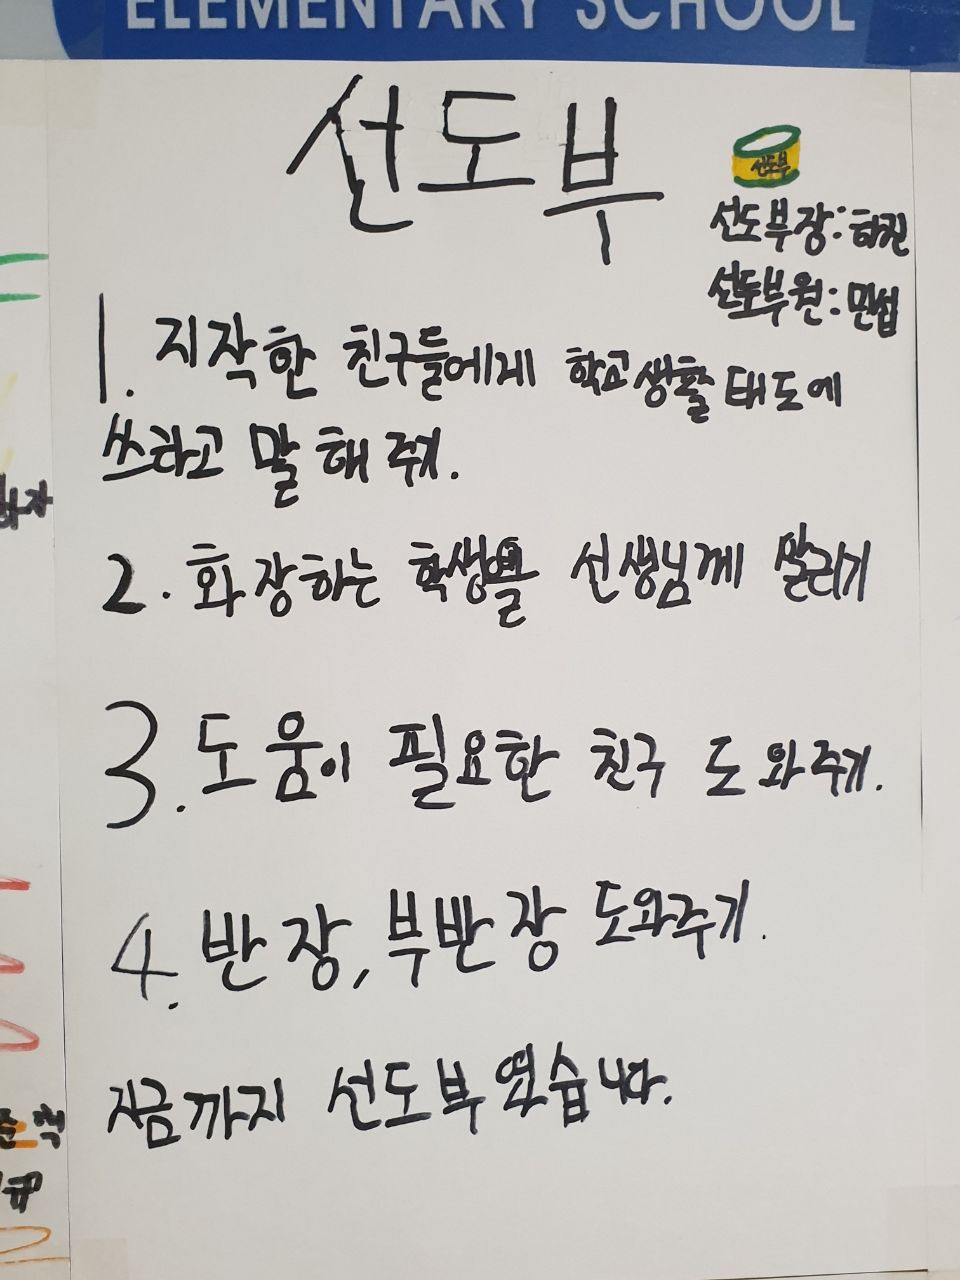 ELEMENTARY SCHOOL
선도부
선도부
선도부장:하권
선도부원:민섭
1. 지작한 친구들에게 학교생활태도에
쓰라고 말해주기.
2. 화장하는 학생들 선생님께 알리기
3. 도움이 필요한 친구 도와주기.
4. 반장, 부반장 도와주기.
지금까지 선도부였습니다.